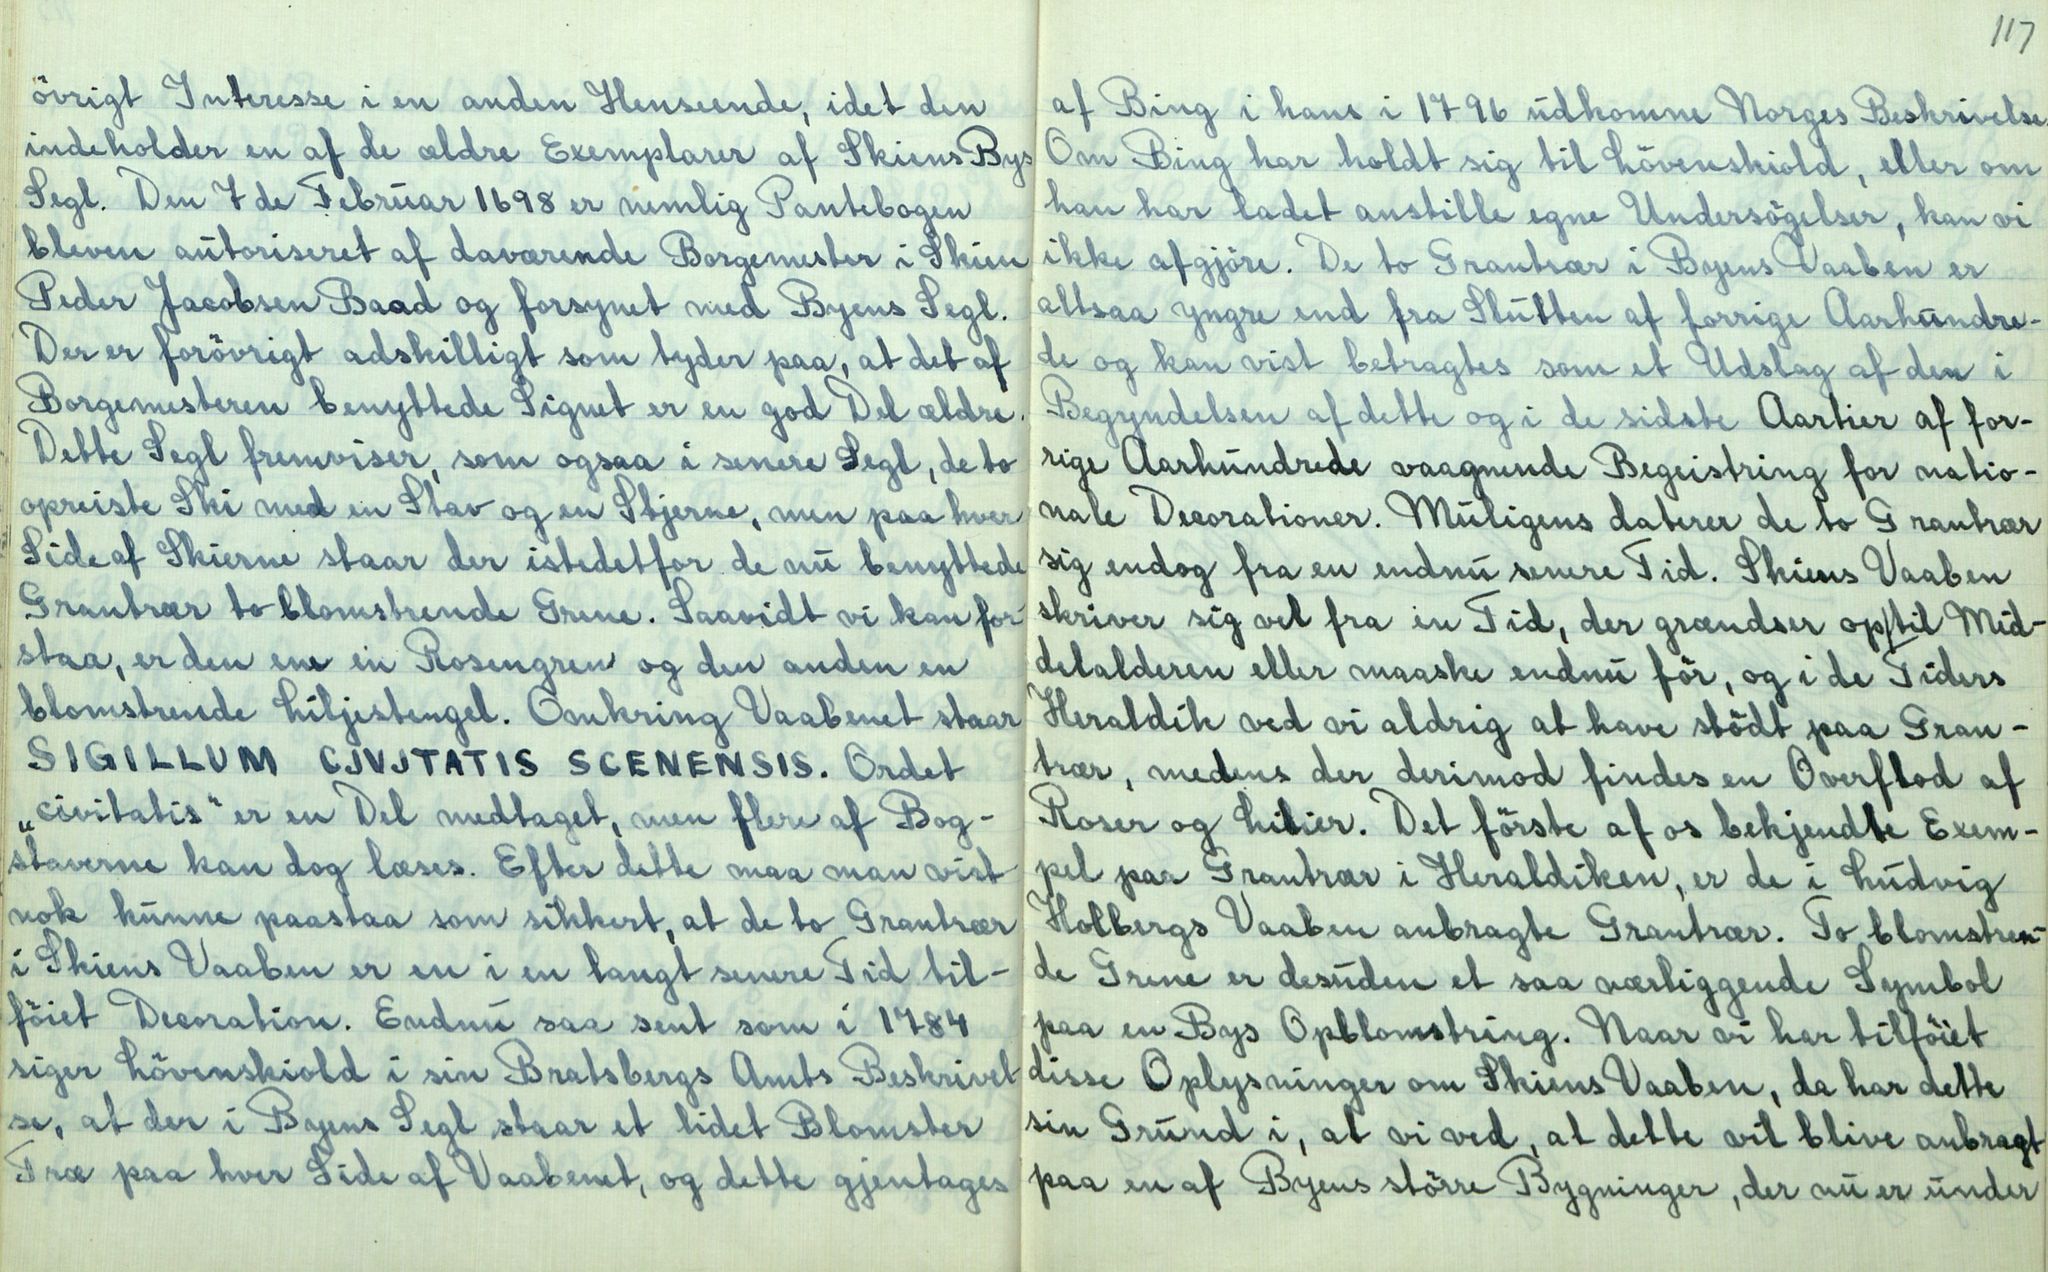 övrigt Interesse i en anden Henseende, idet den
indeholder en af de ældre Exemplarer af Skiens Bys
Segl. Den 7de Februar 1698 er nemlig Pantebogen
bleven autoriseret af daværende Borgemester i Skien
Peder Jacobsen Baad og forsynet med Byens Segl.
Der er forövrigt adskilligt som tyder paa, at det af
Borgemesteren benyttede Signet er en god Del ældre.
Dette Segl fremviser, som ogsaa i senere Segl, de to
opreiste Ski med en Stav og en Stjerne, men paa hver
Side af Skierne staar der istedetfor de nu benyttede
Grantrær to blomstrende Grene. Saavidt vi kan for-
staa, er den ene en Rosengren og den anden en
blomstrende Liljestengel. Omkring Vaabenet staar
SIGILLUM CJVJTATIS SCENENSIS. Ordet
„civitatis" er en Del medtaget, men flere af Bog-
staverne kan dog læses. Efter dette maa man vist
nok kunne paastaa som sikkert, at de to Grantrær
i Skiens Vaaben er en i en langt senere Tid til-
föiet Decoration. Endnu saa sent som i 1784
siger Lövenskiold i sin Bratsbergs Amts Beskrivel
se, at der i Byens Segl staar et lidet Blomster
Træ paa hver Side af Vaabenet, og dette gjentages
117
af Bing i hans i 1796 udkomne Norges Beskrivelse.
Om Bing har holdt sig til Lövenskiold, eller om
han har ladet anstille egne Undersögelser, kan vi
ikke afgjöre. De to Grantrær i Byens Vaaben er
altsaa yngre end fra Slutten af forrige Aarhundre-
de og kan vist betragtes som et Udslag af den i
Begyndelsen af dette og i de sidste Aartier af for-
rige Aarhundrede vaagnende Begeistring for natio-
nale Decorationer. Muligens daterer de to Grantrær
sig endog fra en endnu senere Tid. Skiens Vaaben
skriver sig vel fra en Tid, der grændser op til Mid-
delalderen eller maaske endnu för, og i de Tiders
Heraldik ved vi aldrig at have stödt paa Gran-
trær, medens der derimod findes en Overflod af
Roser og Lilier. Det förste af os bekjendte Exem-
pel paa Grantrær i Heraldiken, er de i Ludvig
Holbergs Vaaben anbragte Grantrær. To blomstren-
de Grene er desuden et saa nærliggende Symbol
paa en Bys Opblomstring. Naar vi har tilföiet
disse Oplysninger om Skiens Vaaben, da har dette
sin Grund i, at vi ved, at dette vil blive anbragt
paa en af Byens större Bygninger, der nu er under